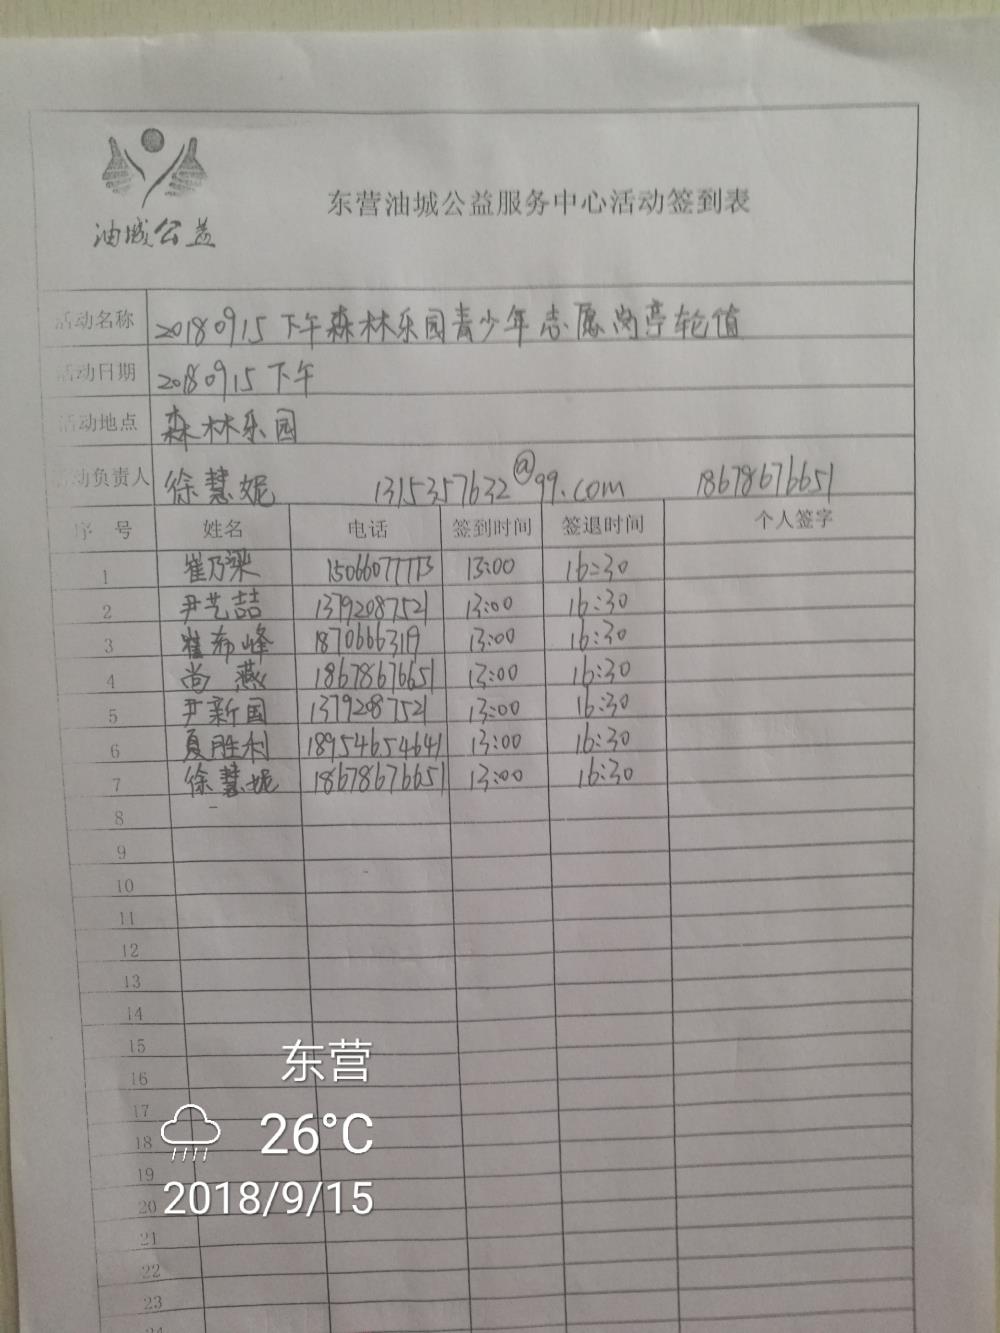 油城公益
东营油城公益服务中心活动签到表
活动名称 20180915下午森林乐园青少年志愿岗亭轮值
活动日期 20180915下午
活动地点 森林乐园
活动负责人 徐慧妮 1315357632@99.com 18678676651
序 号 姓名 电话 签到时间 签退时间 个人签字
1 崔乃梁 15066077773 13:00 16:30
2 尹艺喆 13792087521 13:00 16:30
3 崔希峰 1870666319 13:00 16:30
4 尚燕 18678676651 13:00 16:30
5 尹新国 13792087521 13:00 16:30
6 夏胜利 18954654641 13:00 16:30
7 徐慧妮 18678676651 13:00 16:30
8
9
10
11
12
13
14
15
16
17
18
19
20
21
22
23
24
东营
26°C
2018/9/15